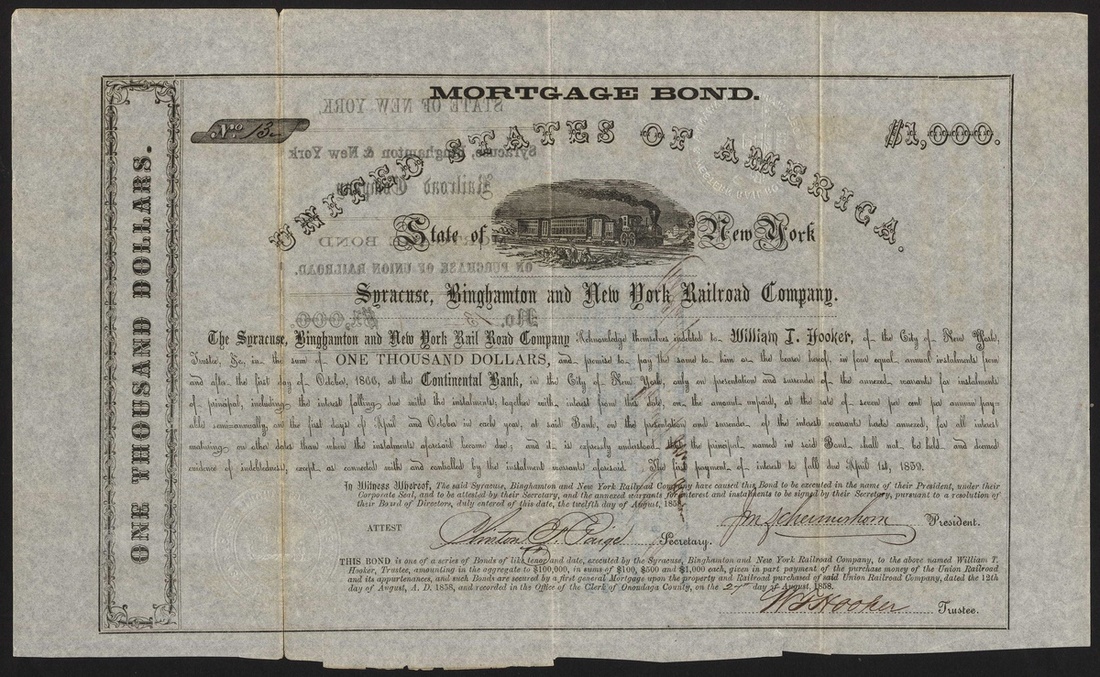 MORTGAGE BOND.
No 13
$1,000.
UNITED STATES OF AMERICA.
State of New York
Syracuse, Binghamton and New York Railroad Company.
The Syracuse, Binghamton and New York Rail Road Company Acknowledge themselves indebted to William T. Hooker, of the City of New York,
Trustee, &c, in the sum of ONE THOUSAND DOLLARS, and promise to pay the same to him or the bearer hereof, in four equal annual instalments from
and after the first day of October, 1866, at the Continental Bank, in the City of New York, only on presentation and surrender of the annexed warrants for instalments
of principal, including the interest falling due with the instalments; together with interest from this date, on the amount unpaid, at the rate of seven per cent per annum pay-
able semi-annually, on the first days of April and October in each year, at said Bank, on the presentation and surrender of the interest warrants hereto annexed, for all interest
maturing on other dates than when the instalments aforesaid become due; and it is expressly understood that the principal named in said Bond shall not be held and deemed
evidence of indebtedness, except as connected with and controlled by the instalment warrants aforesaid. The first payment of interest to fall due April 1st, 1859.
In Witness Whereof, The said Syracuse, Binghamton and New York Railroad Company have caused this Bond to be executed in the name of their President, under their
Corporate Seal, and to be attested by their Secretary, and the annexed warrants for interest and instalments to be signed by their Secretary, pursuant to a resolution of
their Board of Directors, duly entered of this date, the twelfth day of August, 1858.
ATTEST
Clinton F. Paige Secretary.
J M Schermerhorn President.
THIS BOND is one of a series of Bonds of like tenor and date, executed by the Syracuse, Binghamton and New York Railroad Company, to the above named William T.
Hooker, Trustee, amounting in the aggregate to $100,000, in sums of $100, $500 and $1,000 each, given in part payment of the purchase money of the Union Railroad
and its appurtenances, and such Bonds are secured by a first general Mortgage upon the property and Railroad purchased of said Union Railroad Company, dated the 12th
day of August, A. D. 1858, and recorded in the Office of the Clerk of Onondaga County, on the 27 day of August, 1858.
W T Hooker Trustee.
ONE THOUSAND DOLLARS.
STATE OF NEW YORK
Syracuse, Binghamton & New York
Railroad Company
BOND
ON PURCHASE OF UNION RAILROAD.
No. 13 $1,000.